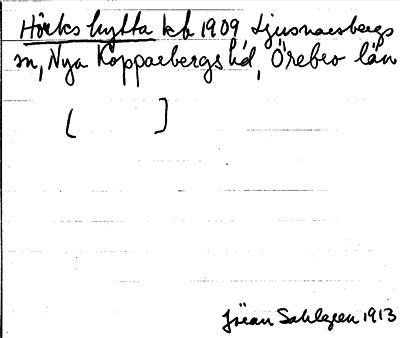 Hörks hytta kb 1909 Ljusnarsbergs
sn, Nya Kopparbergs hd, Örebro län
[ ]
Jöran Sahlgren 1913